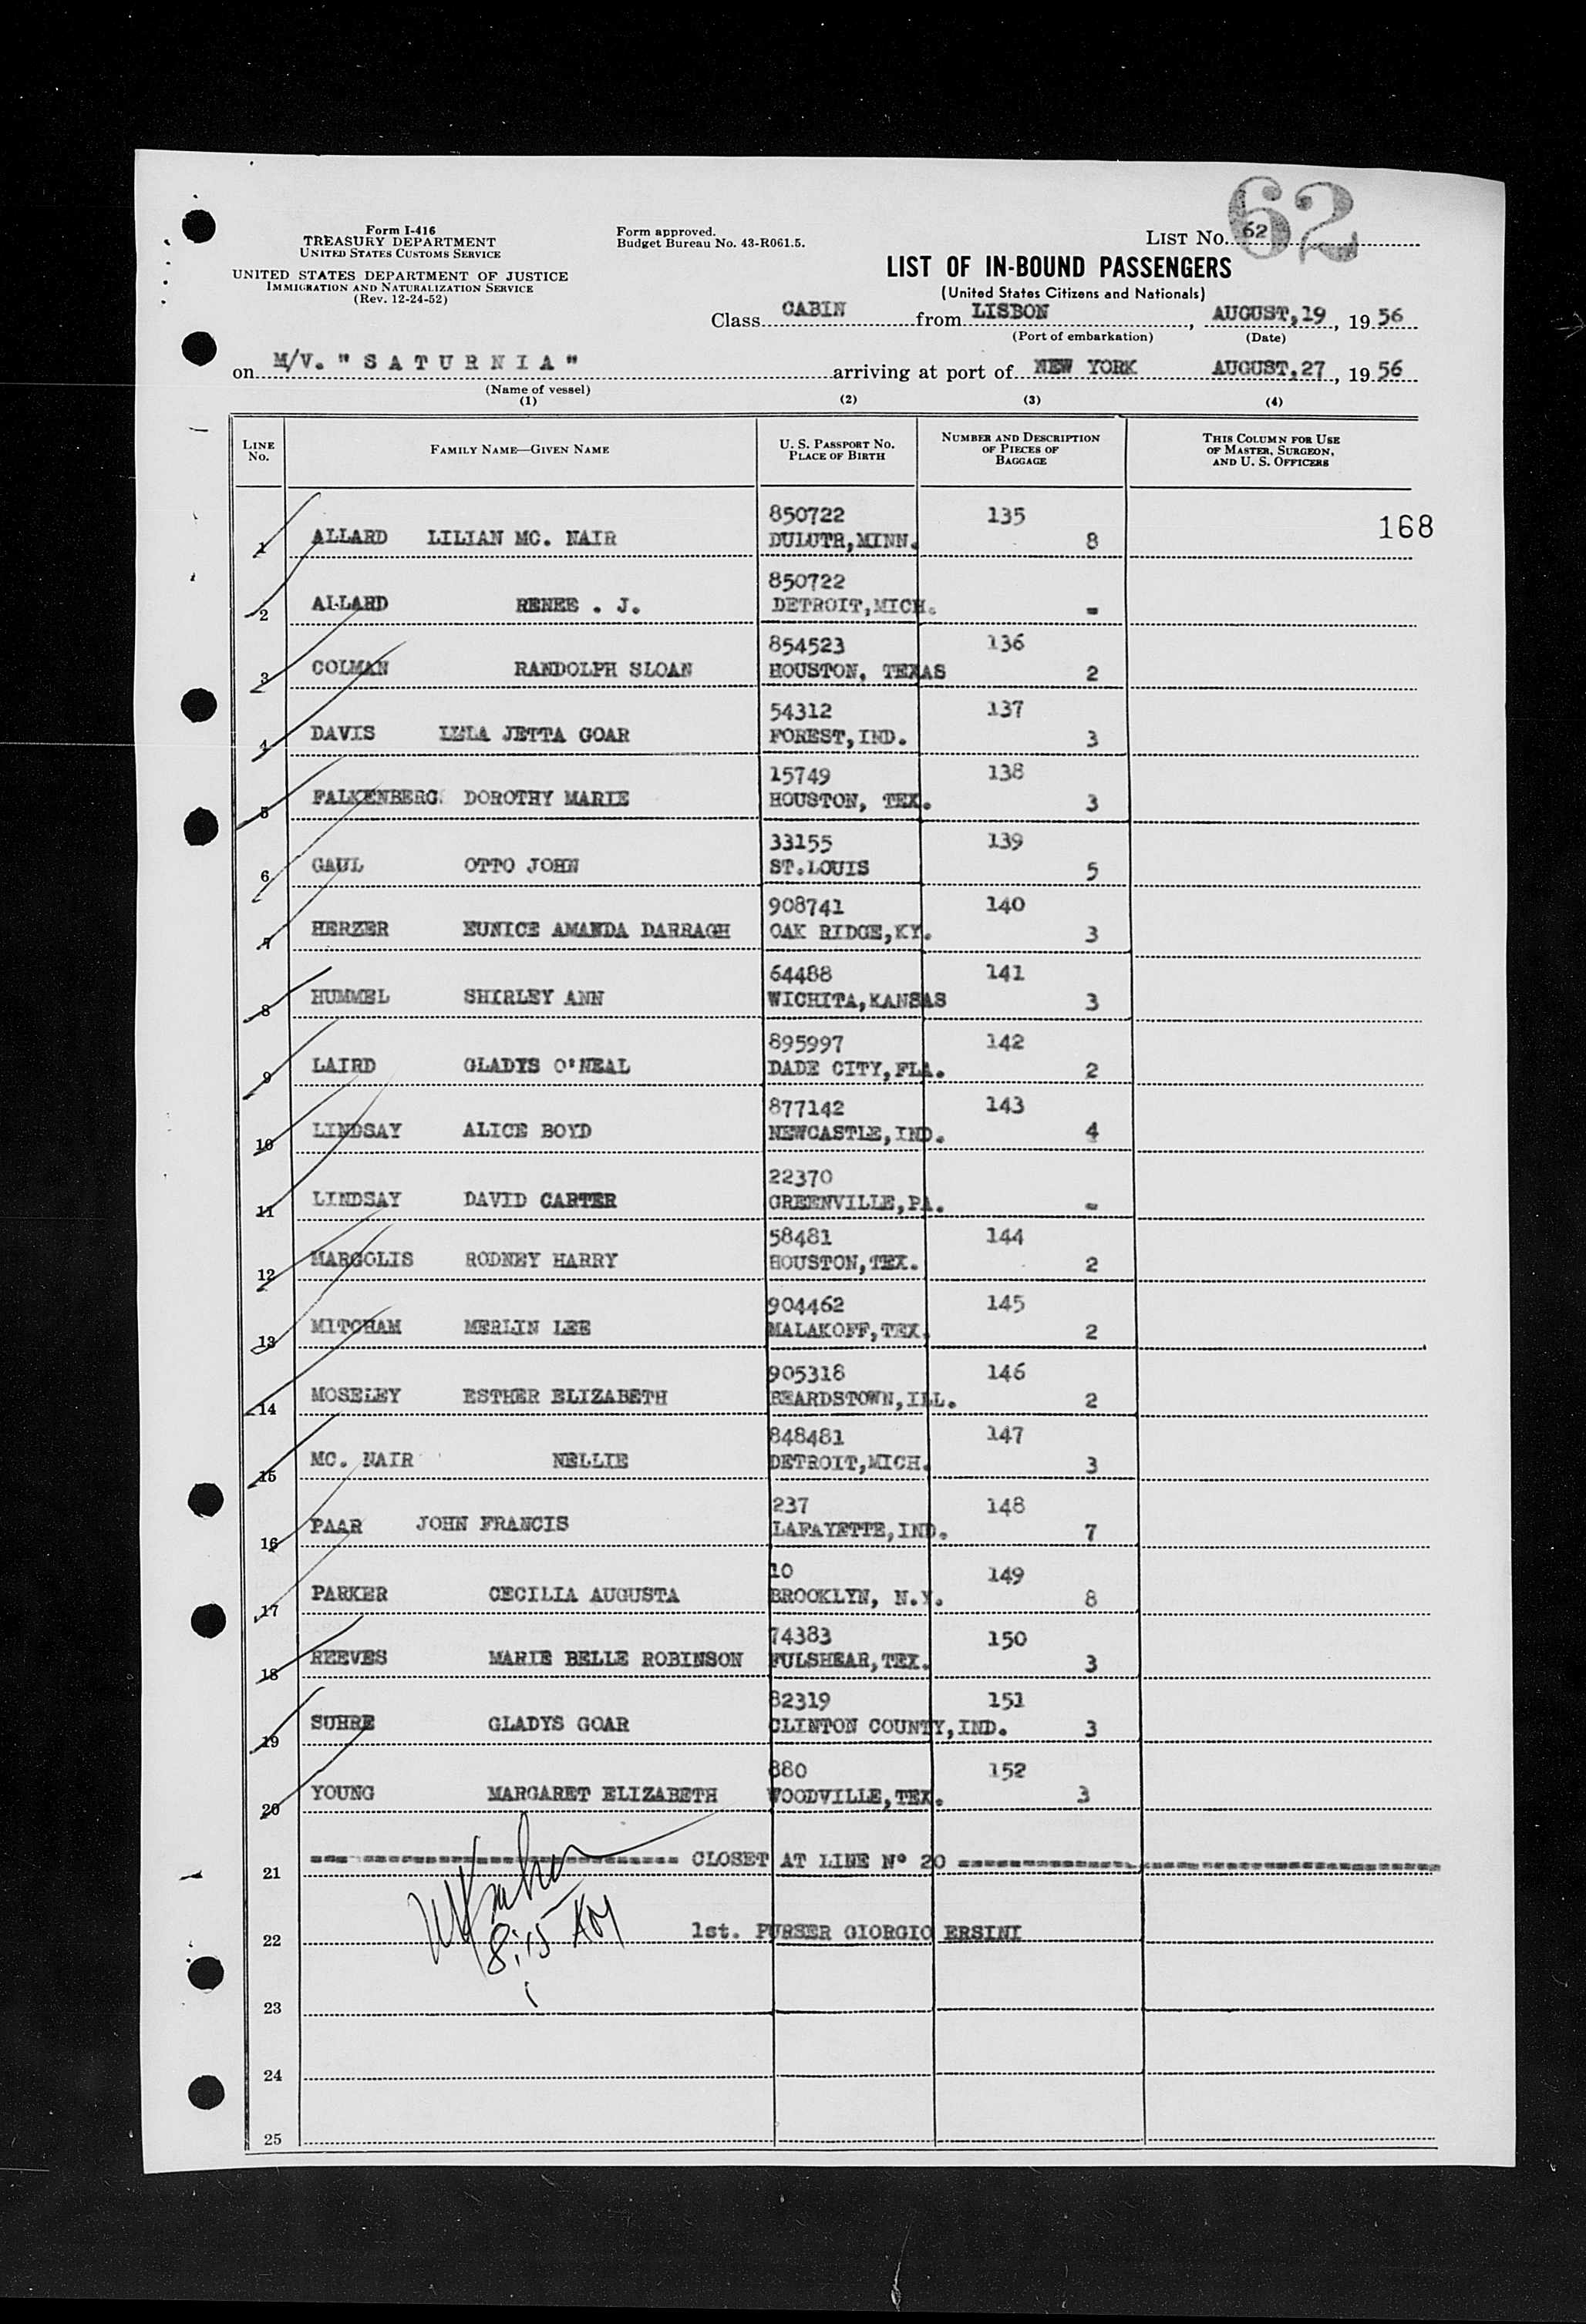 62
Form I-416
TREASURY DEPARTMENT
UNITED STATES CUSTOMS SERVICE
UNITED STATES DEPARTMENT OF JUSTICE
IMMIGRATION AND NATURALIZATION SERVICE
(Rev. 12-24-52)
Form approved.
Budget Bureau No. 43-R061.5.
LIST NO. 62
LIST OF IN-BOUND PASSENGERS
(United States Citizens and Nationals)
Class CABIN from LISBON, AUGUST,19, 19 56
(Port of embarkation) (Date)
on M/V. "SATURNIA" arriving at port of NEW YORK AUGUST,27, 19 56
(Name of vessel)
(1) (2) (3) (4)
LINE No. FAMILY NAME—GIVEN NAME U. S. PASSPORT NO. PLACE OF BIRTH NUMBER AND DESCRIPTION OF PIECES OF BAGGAGE THIS COLUMN FOR USE OF MASTER, SURGEON, AND U. S. OFFICERS
850722 135 168
1 ALLARD LILIAN MC. NAIR DULUTH,MINN. 8
850722
2 ALLARD RENEE . J. DETROIT,MICH. -
854523 136
3 COLMAN RANDOLPH SLOAN HOUSTON, TEXAS 2
54312 137
4 DAVIS LELA JETTA GOAR FOREST,IND. 3
15749 138
5 FALKENBERG DOROTHY MARIE HOUSTON, TEX. 3
33155 139
6 GAUL OTTO JOHN ST.LOUIS 5
908741 140
7 HERZER EUNICE AMANDA DARRAGH OAK RIDGE,KY. 3
64488 141
8 HUMMEL SHIRLEY ANN WICHITA,KANSAS 3
895997 142
9 LAIRD GLADYS O'NEAL DADE CITY,FLA. 2
877142 143
10 LINDSAY ALICE BOYD NEWCASTLE,IND. 4
22370
11 LINDSAY DAVID CARTER GREENVILLE,PA. -
58481 144
12 MARGOLIS RODNEY HARRY HOUSTON,TEX. 2
904462 145
13 MITCHAM MERLIN LEE MALAKOFF,TEX. 2
905318 146
14 MOSELEY ESTHER ELIZABETH BEARDSTOWN,ILL. 2
848481 147
15 MC. NAIR NELLIE DETROIT,MICH. 3
237 148
16 PAAR JOHN FRANCIS LAFAYETTE,IND. 7
10 149
17 PARKER CECILIA AUGUSTA BROOKLYN, N.Y. 8
74383 150
18 REEVES MARIE BELLE ROBINSON FULSHEAR,TEX. 3
82319 151
19 SUHRE GLADYS GOAR CLINTON COUNTY,IND. 3
880 152
20 YOUNG MARGARET ELIZABETH WOODVILLE,TEX. 3
21 CLOSET AT LINE Nº 20
22 1st. PURSER GIORGIO ERSINI
8:15 AM
23
24
25